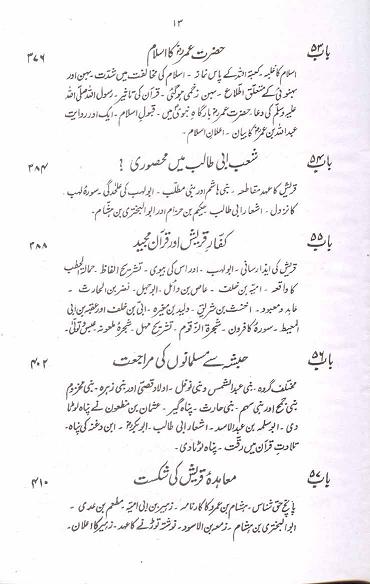 ۱۳
باب ۵۳ حضرت عمرؓ کا اسلام ۳۷۶
اسلام کا غلبہ۔ کعبۃ اللہ کے پاس نماز۔ اسلام کی مخالفت میں شدت۔ بہن اور
بہنوئی کے متعلق اطلاع۔ بہن زخمی ہو گئی۔ قرآن کی تاثیر۔ رسول اللہ صلی اللہ
علیہ وسلم کی دعا۔ حضرت عمرؓ بارگاہِ نبویؐ میں۔ قبولِ اسلام۔ ایک اور روایت
عبداللہ بن عمرؓ کا بیان۔ اعلانِ اسلام۔
باب ۵۴ شعب ابی طالب میں محصوری! ۳۸۴
قریش کا عہد مقاطعہ۔ بنی ہاشم اور بنی مطلب۔ ابولہب کی علٰحدگی۔ سورۂ لہب
کا نزول۔ اشعار ابی طالب۔ حکیم بن حزام اور ابو البختری بن ہشام۔
باب ۵۵ کفارِ قریش اور قرآن مجید ۳۸۸
قریش کی ایذا رسانی۔ ابولہب۔ اور اس کی بیوی۔ تشریح الفاظ۔ حمالۃ الحطب
کا واقعہ۔ امیہ بن خلف۔ عاص بن وائل۔ ابوجہل۔ نضر بن الحارث۔
عابد و معبود۔ اخنس بن شریق۔ ولید بن مغیرہ۔ ابی بن خلف اور عقبہ بن ابی
المعیط۔ سورۂ کافرون۔ شجرۃ الزقوم۔ تشریح مہل۔ شجرۂ ملعونہ۔
باب ۵۶ حبشہ سے مسلمانوں کی مراجعت ۴۰۲
مختلف گروہ۔ بنی عبدالشمس و بنی نوفل۔ اولاد قصی اور بنی زہرہ۔ بنی مخزوم
بنی جمح اور بنی سہم۔ بنی حارث۔ پناہ گیر۔ عثمان بن مظعون نے پناہ لوٹا
دی۔ ابو سلمہ بن عبدالاسد۔ اشعار ابی طالب۔ ابوبکرؓ۔ ابن دغنہ کی پناہ۔
تلاوتِ قرآن میں رقت۔ پناہ لوٹا دی۔
باب ۵۷ معاہدۂ قریش کی شکست ۴۱۰
پانچ حق شناس۔ ہشام بن عمرو کا کارنامہ۔ زہیر بن ابی امیہ۔ مطعم بن عدی۔
ابو البختری بن ہشام۔ زمعہ بن الاسود۔ نوشتہ توڑنے کا عہد۔ زہیر کا اعلان۔